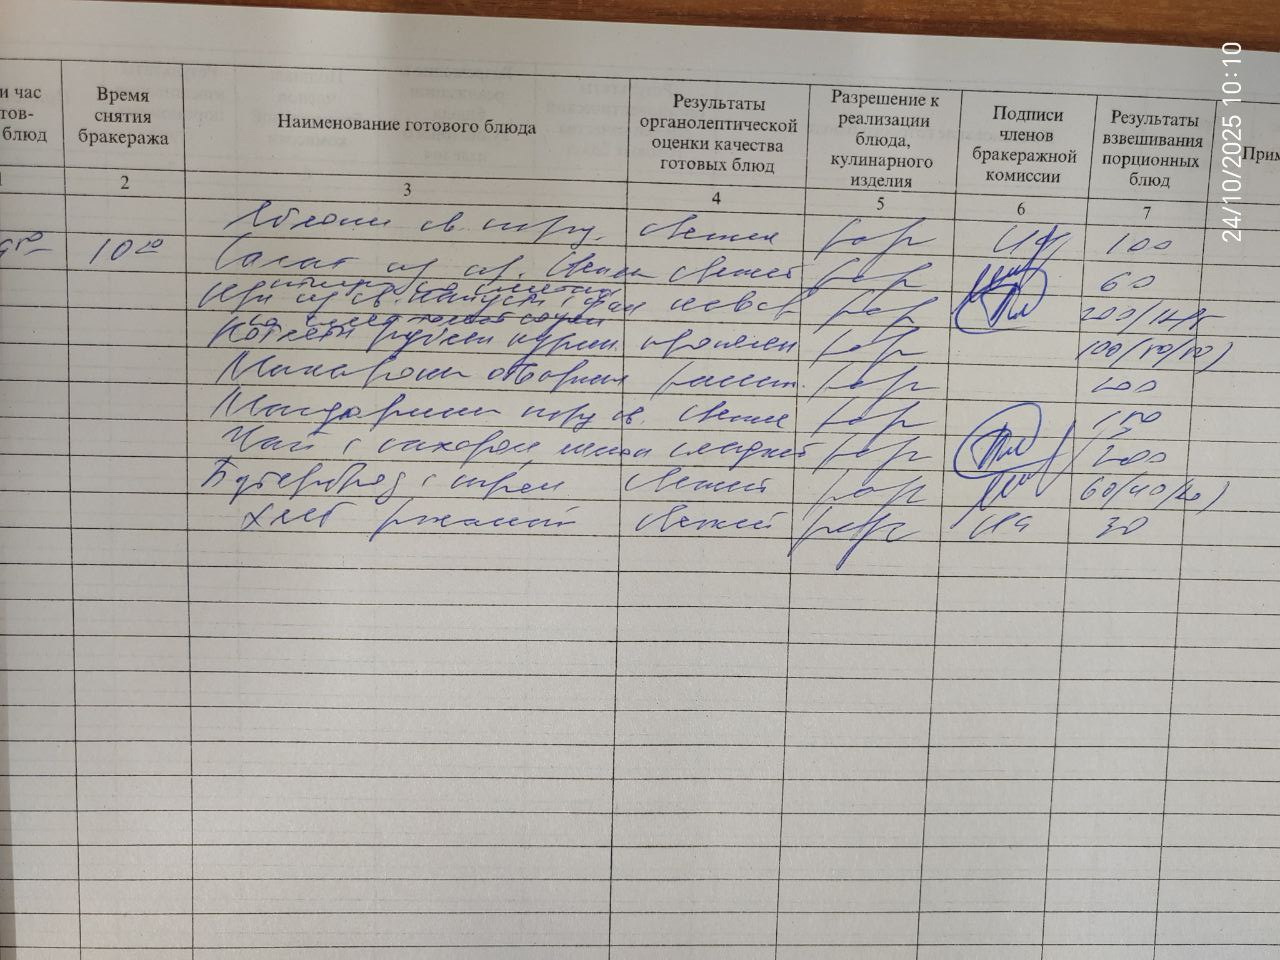 24/10/2025 10:10
и час
тов-
блюд
Время
снятия
бракеража
Наименование готового блюда
Результаты
органолептической
оценки качества
готовых блюд
Разрешение к
реализации
блюда,
кулинарного
изделия
Подписи
членов
бракеражной
комиссии
Результаты
взвешивания
порционных
блюд
Прим
1 2 3 4 5 6 7
Яблоки св. порц. свежие разр 100
10 20 Салат из св. свежий разр 60
Щи из св. капусты с разр 200/
Котлеты рубл. курин. разр 100/50/50)
Макароны отварные рассып. разр 200
Мандарины порц св. свежие разр 150
Чай с сахаром сладкий разр 200
Бутерброд с сыром свежий разр 60/40/20)
Хлеб ржаной свежий разр 30